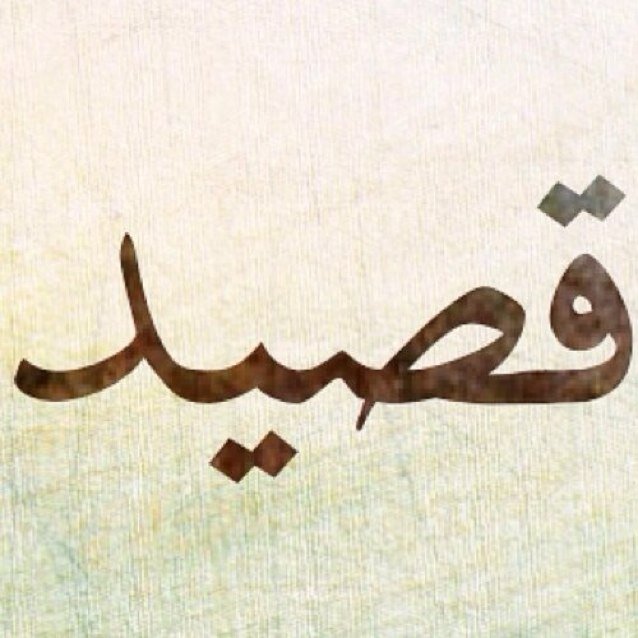 قصيد